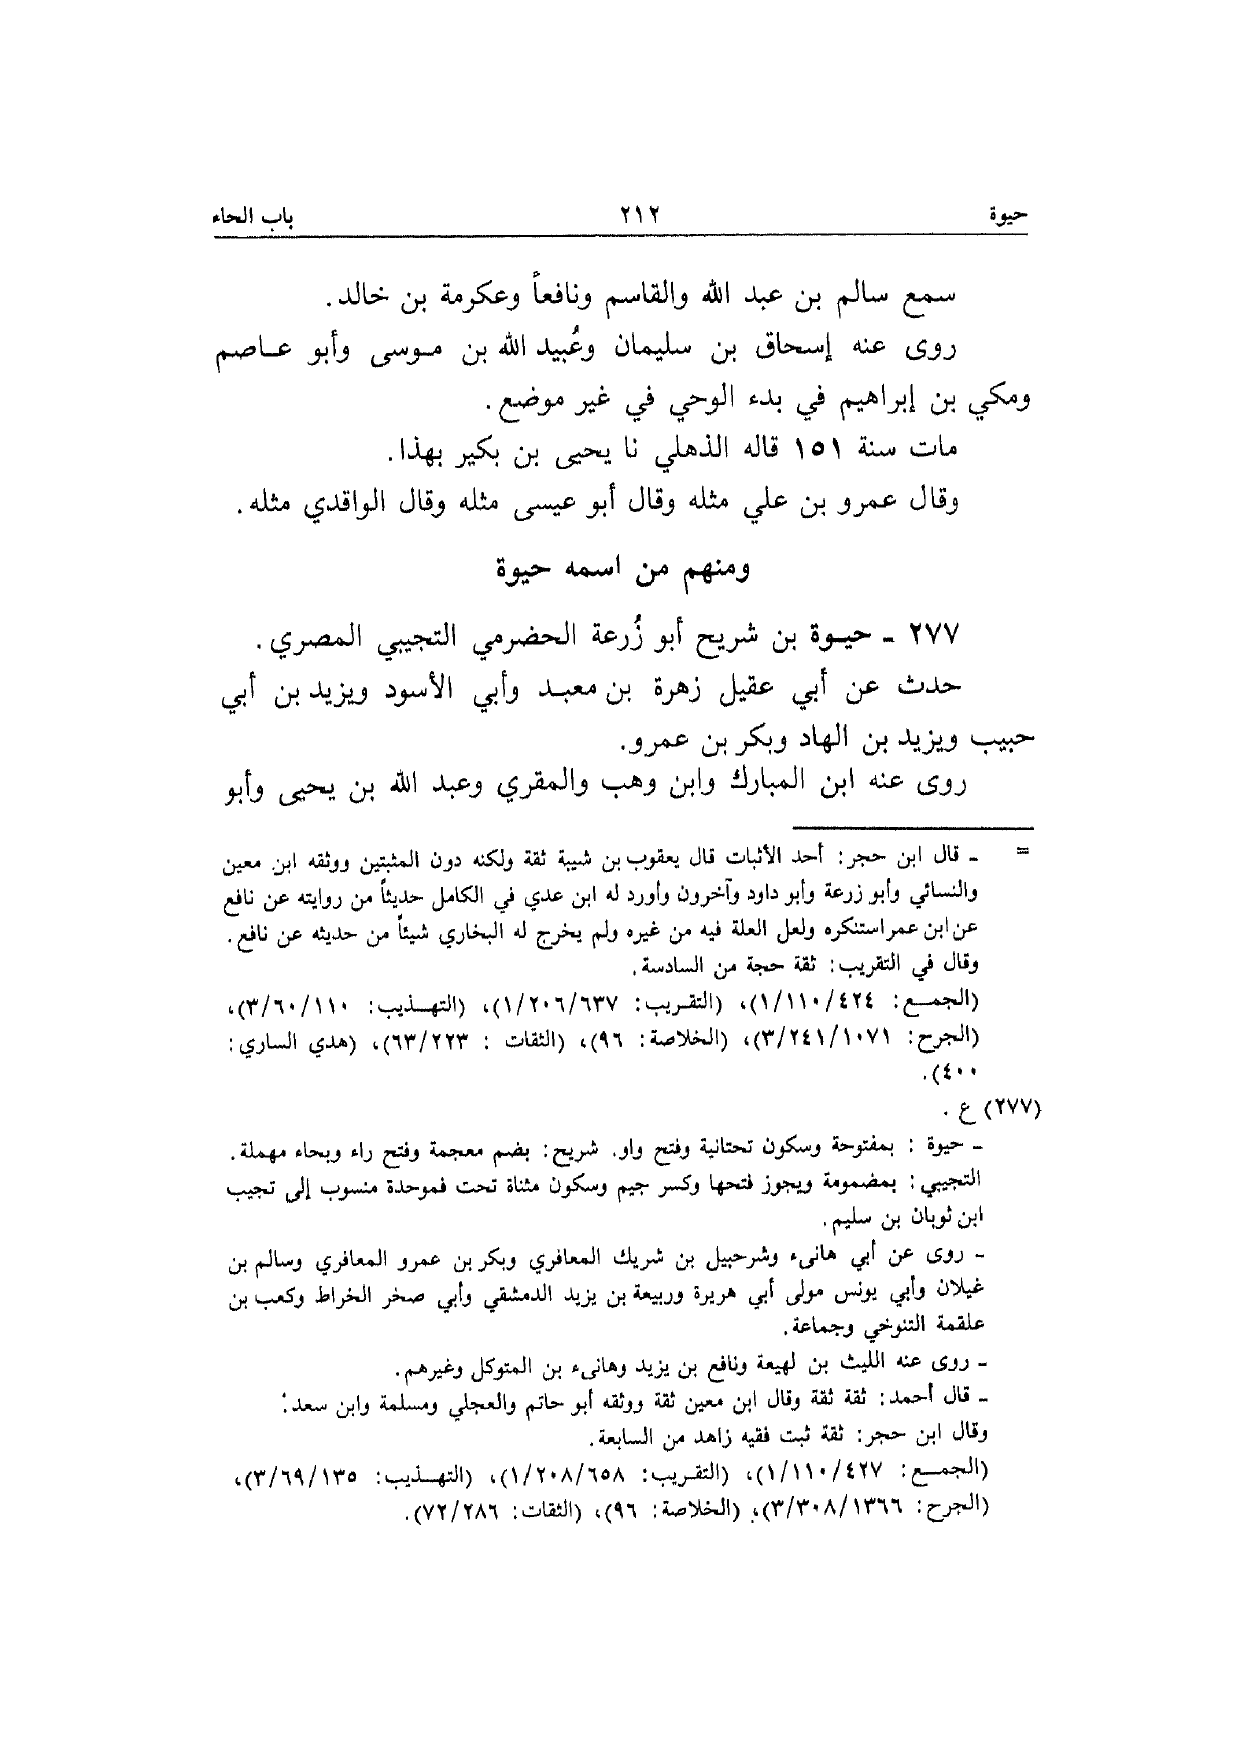 حيوة ٢١٢ باب الحاء
سمع سالم بن عبد الله والقاسم ونافعاً وعكرمة بن خالد.
روى عنه إسحاق بن سليمان وعُبيد الله بن موسى وأبو عاصم
ومكي بن إبراهيم في بدء الوحي في غير موضع.
مات سنة ١٥١ قاله الذهلي نا يحيى بن بكير بهذا.
وقال عمرو بن علي مثله وقال أبو عيسى مثله وقال الواقدي مثله.
ومنهم من اسمه حيوة
٢٧٧ - حيوة بن شريح أبو زُرعة الحضرمي التجيبي المصري.
حدث عن أبي عقيل زهرة بن معبد وأبي الأسود ويزيد بن أبي
حبيب ويزيد بن الهاد وبكر بن عمرو.
روى عنه ابن المبارك وابن وهب والمقري وعبد الله بن يحيى وأبو
= - قال ابن حجر: أحد الأثبات قال يعقوب بن شيبة ثقة ولكنه دون المثبتين ووثقه ابن معين
والنسائي وأبو زرعة وأبو داود وآخرون وأورد له ابن عدي في الكامل حديثاً من روايته عن نافع
عن ابن عمر استنكره ولعل العلة فيه من غيره ولم يخرج له البخاري شيئاً من حديثه عن نافع.
وقال في التقريب: ثقة حجة من السادسة.
(الجمع: ١/١١٠/٤٢٤)، (التقريب: ١/٢٠٦/٦٣٧)، (التهذيب: ٣/٦٠/١١٠)،
(الجرح: ٣/٢٤١/١٠٧١)، (الخلاصة: ٩٦)، (الثقات : ٦٣/٢٢٣)، (هدي الساري:
٤٠٠).
(٢٧٧) ع .
- حيوة : بمفتوحة وسكون تحتانية وفتح واو. شريح: بضم معجمة وفتح راء وبحاء مهملة.
التجيبي: بمضمومة ويجوز فتحها وكسر جيم وسكون مثناة تحت فموحدة منسوب إلى تجيب
ابن ثوبان بن سليم.
- روى عن أبي هانىء وشرحبيل بن شريك المعافري وبكر بن عمرو المعافري وسالم بن
غيلان وأبي يونس مولى أبي هريرة وربيعة بن يزيد الدمشقي وأبي صخر الخراط وكعب بن
علقمة التنوخي وجماعة.
- روى عنه الليث بن لهيعة ونافع بن يزيد وهانىء بن المتوكل وغيرهم.
- قال أحمد: ثقة ثقة وقال ابن معين ثقة ووثقه أبو حاتم والعجلي ومسلمة وابن سعد:
وقال ابن حجر: ثقة ثبت فقيه زاهد من السابعة.
(الجمع: ١/١١٠/٤٢٧)، (التقريب: ١/٢٠٨/٦٥٨)، (التهذيب: ٣/٦٩/١٣٥)،
(الجرح: ٣/٣٠٨/١٣٦٦)، (الخلاصة: ٩٦)، (الثقات: ٧٢/٢٨٦).